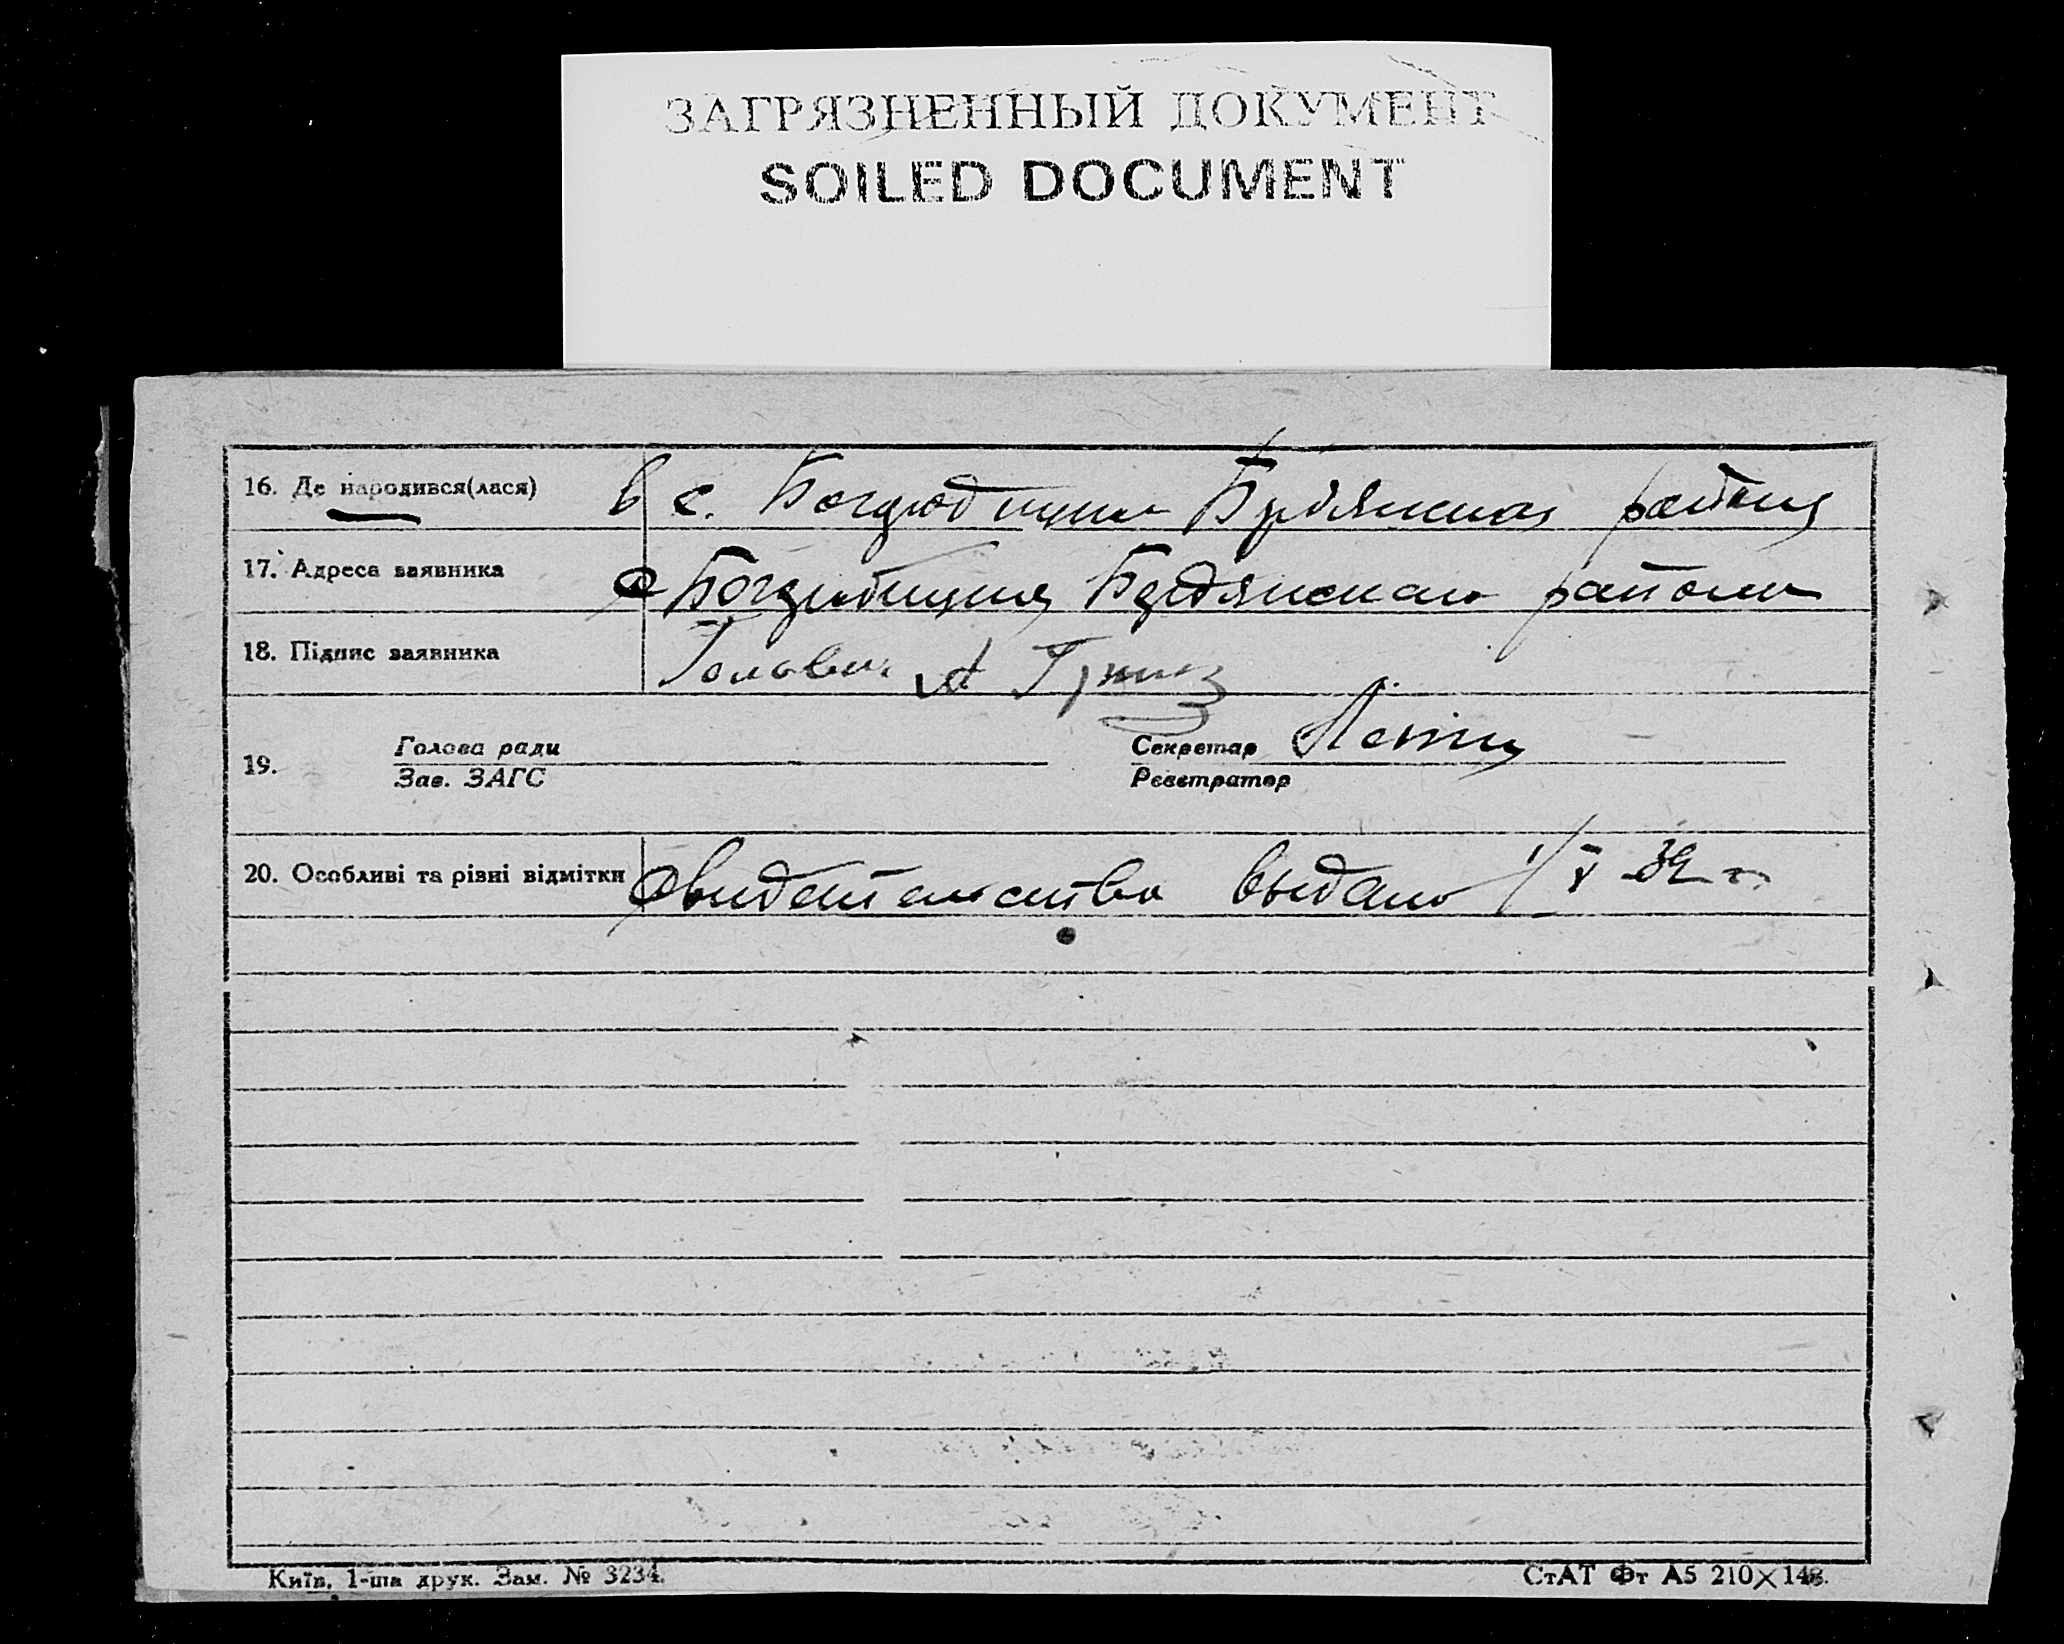 ЗАГРЯЗНЕННЫЙ ДОКУМЕНТ
SOILED DOCUMENT
16. Де народився(лася) в с. района
17. Адреса заявника с Бердянского района
18. Підпис заявника
19. Голова ради Секретар
Зав. ЗАГС Реєстратор
20. Особливі та різні відмітки свидетельство выдано 1/V 39 г.
Київ, 1-ша друк. Зам. № 3234.
СтАТ Фт А5 210×148.